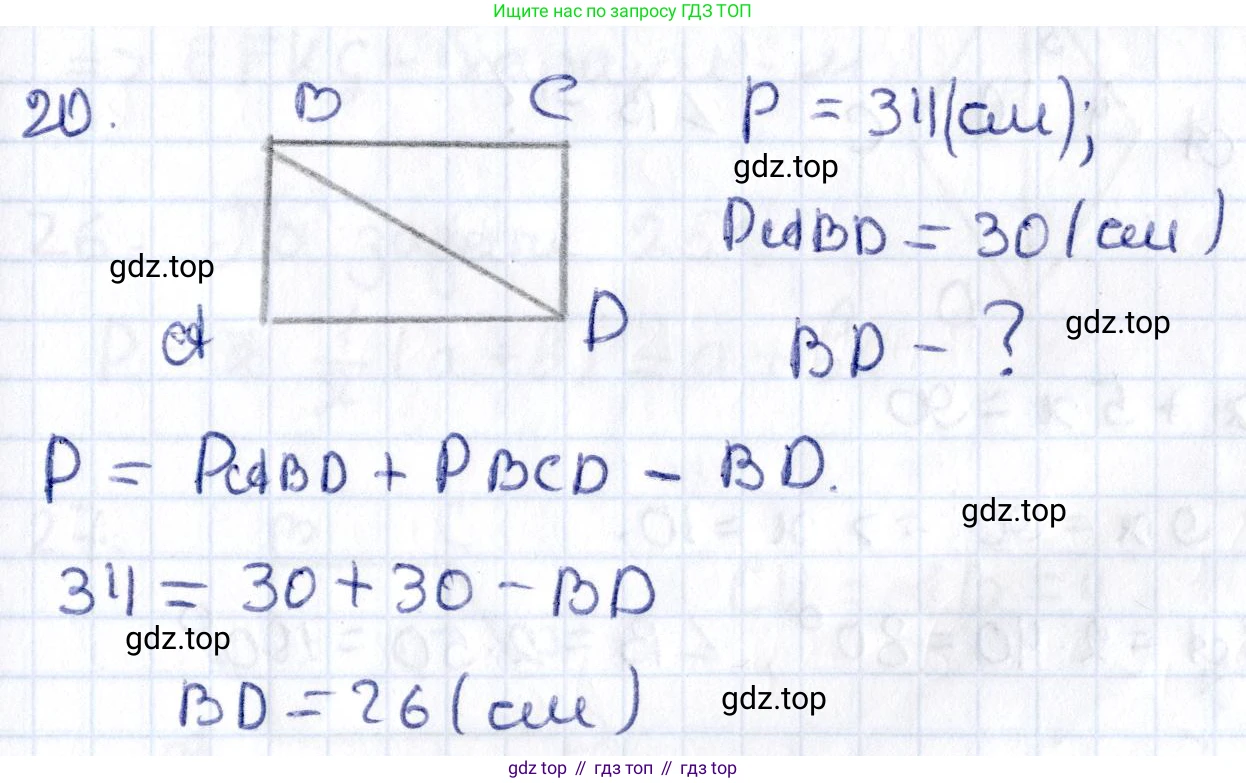 Ищите нас по запросу ГДЗ ТОП
20.
B C
A D
P = 34(см);
gdz.top
PABD = 30(см)
gdz.top
BD - ?
gdz.top
P = PABD + PBCD - BD.
gdz.top
34 = 30 + 30 - BD
gdz.top
BD = 26 (см)
gdz.top
gdz top // гдз топ // gdz top